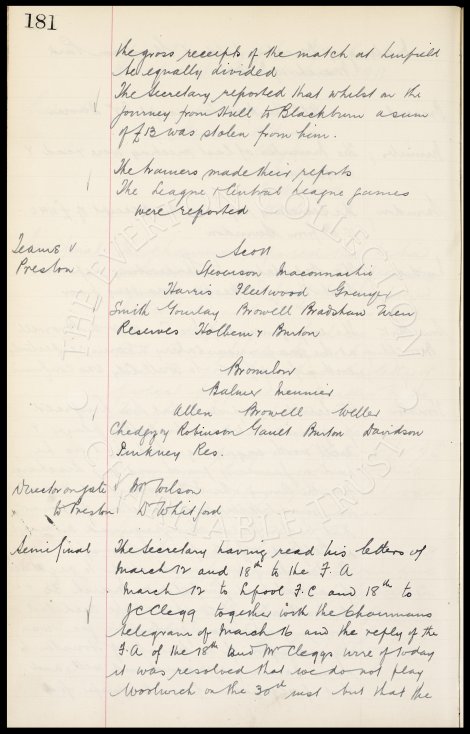 181
the gross receipts of the match at Linfield
be equally divided
The Secretary reported that whilst on the
journey from Hull to Blackburn a sum
of £13 was stolen from him.
The trainers made their reports
The League & Central League games
were reported
Teams v
Preston
Scott
Stevenson Maconnachie
Harris Fleetwood Grenyer
Smith Gourlay Browell Bradshaw Wren
Reserves Holbem & Burton
Bromilow
Balmer Meunier
Allen Browell Weller
Chedgzoy Robinson Gault Burton Davidson
Pinkney Res.
Director on gate Mr Wilson
to Preston Dr Whitford
Semi final
The Secretary having read his letters of
March 12 and 18th to the F. A
March 12 to Lpool F.C and 18th to
JC Clegg together with the Chairmans
telegram of March 16 and the reply of the
F.A of the 18th and Mr Cleggs wire of today
it was resolved that we do not play
Woolwich on the 30th inst but that the
THE EVERTON COLLECTION
CHARITABLE TRUST